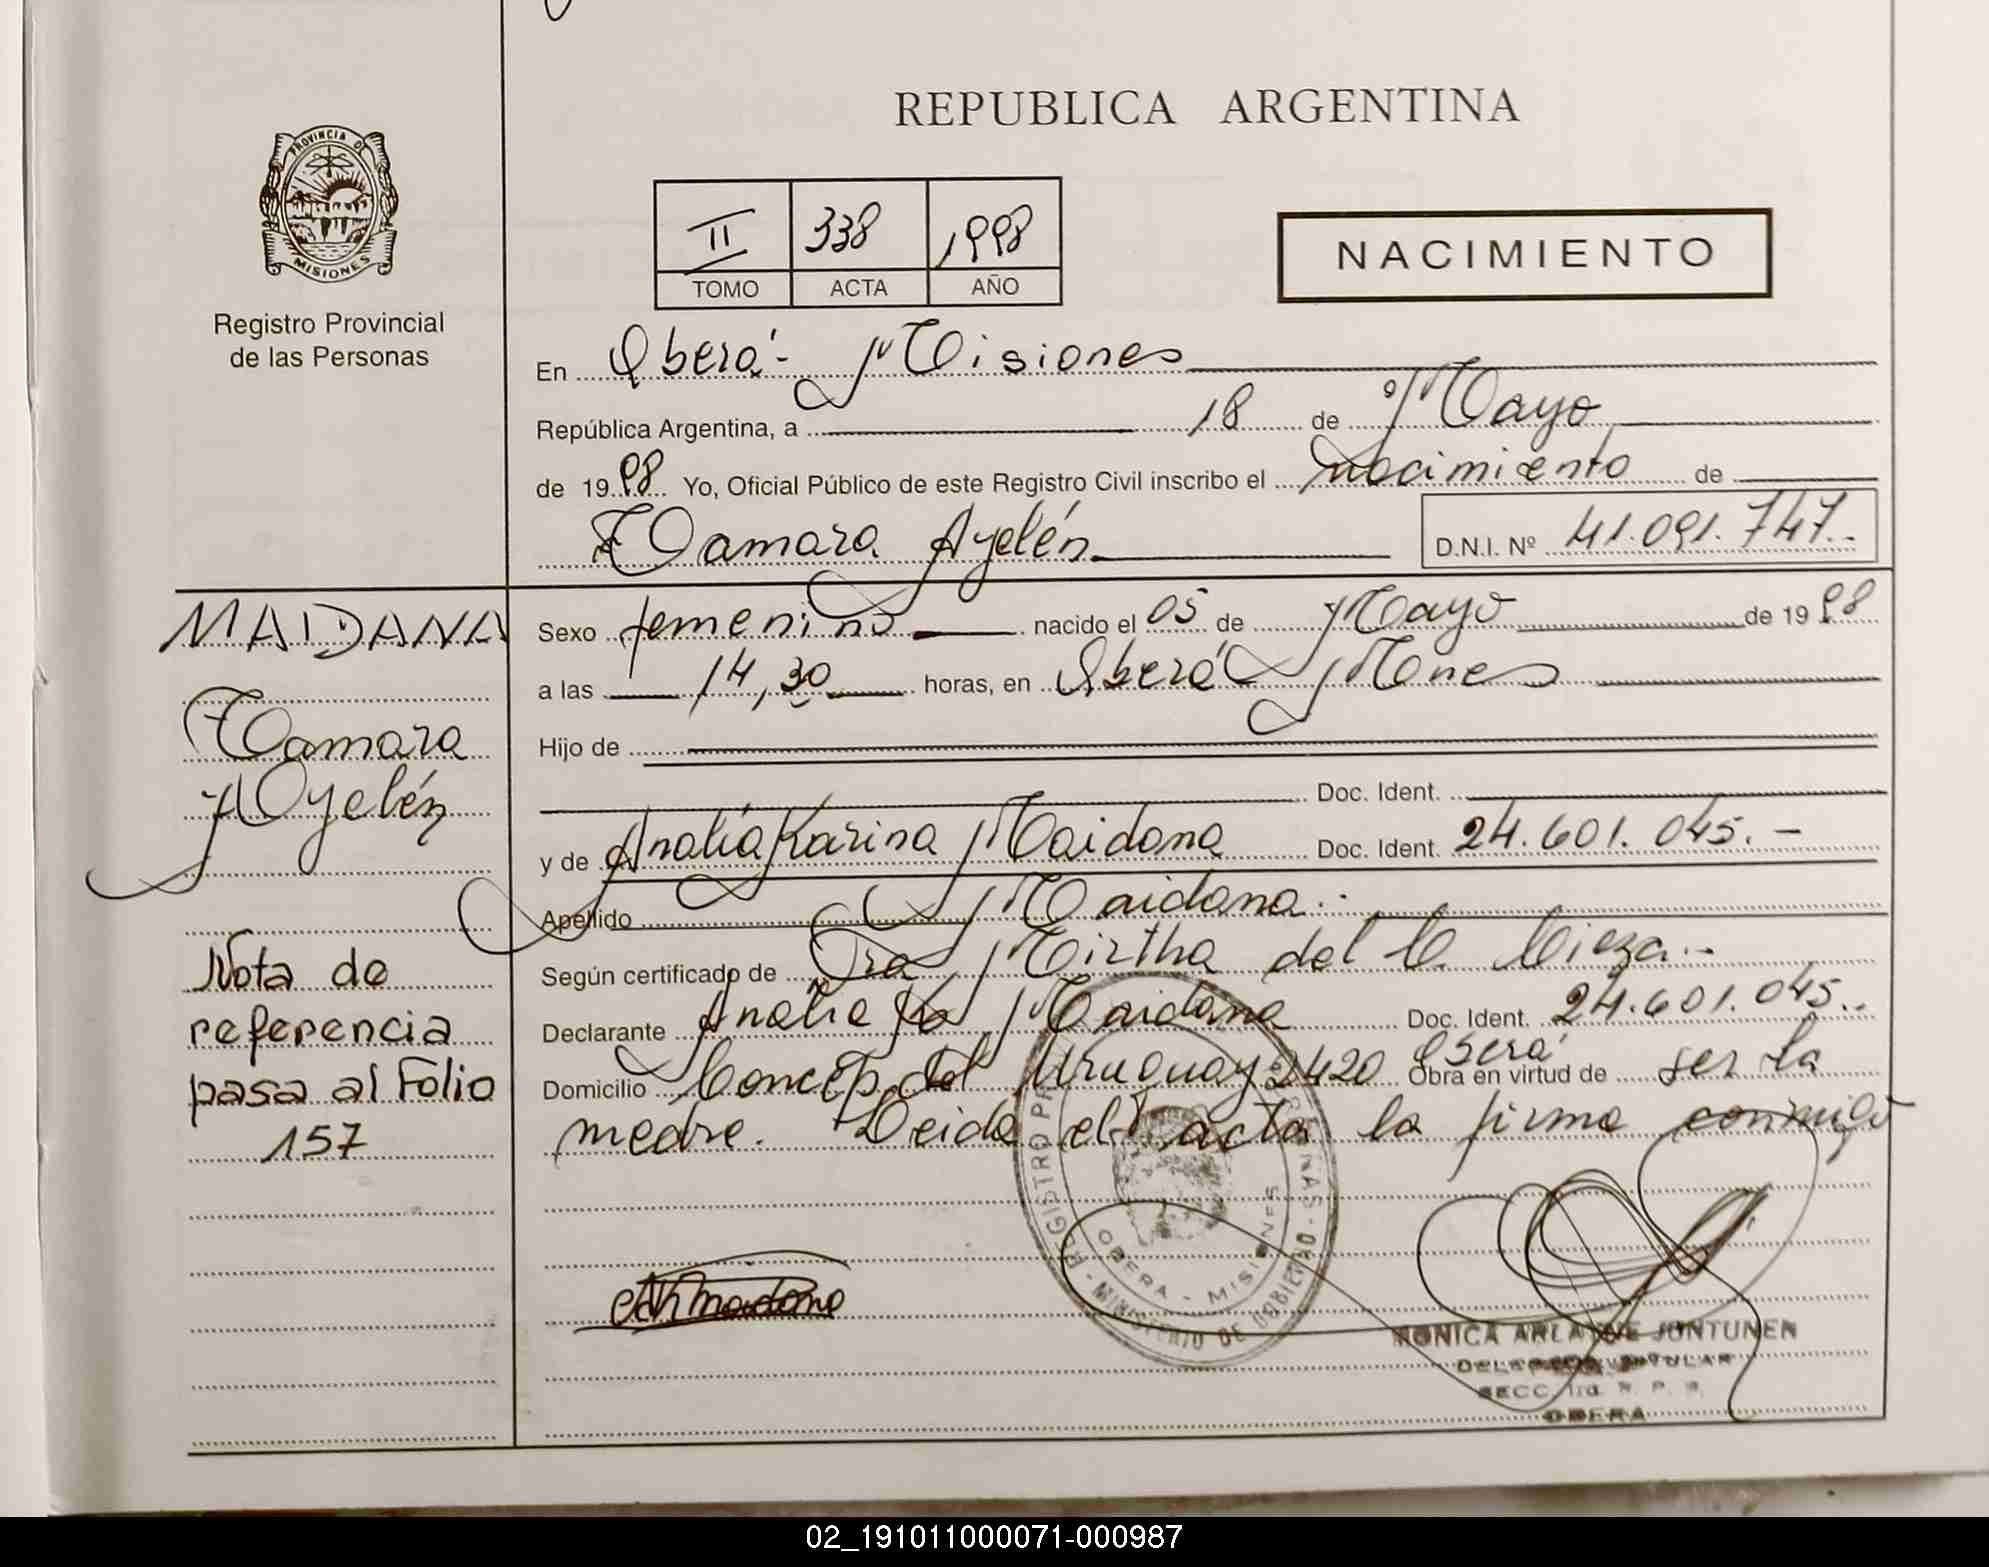 REPUBLICA ARGENTINA
PROVINCIA DE
MISIONES
Registro Provincial
de las Personas
II 338 1998
TOMO ACTA AÑO
NACIMIENTO
En Oberá - Misiones
República Argentina, a 18 de Mayo
de 1998 Yo, Oficial Público de este Registro Civil inscribo el nacimiento de
Tamara Ayelén D.N.I. Nº 41.091.747.-
MAIDANA
Tamara
Ayelén
Nota de
referencia
pasa al Folio
157
Sexo femenino nacido el 05 de Mayo de 1998
a las 14,30 horas, en Oberá Mnes
Hijo de
Doc. Ident.
y de Analía Karina Maidana Doc. Ident. 24.601.045.-
Apellido Maidana.-
Según certificado de Dra Mirtha del C. Cieza.-
Declarante Analía K. Maidana Doc. Ident. 24.601.045.-
Domicilio Concep. del Uruguay 2420 Oberá Obra en virtud de ser la
madre. Leida el acta la firma conmigo
REGISTRO
OBERA - MISIONES
MINISTERIO DE GOBIERNO
MONICA JUNTUNEN
TITULAR
SECC. 1ra. R. P. P.
OBERA
02_191011000071-000987